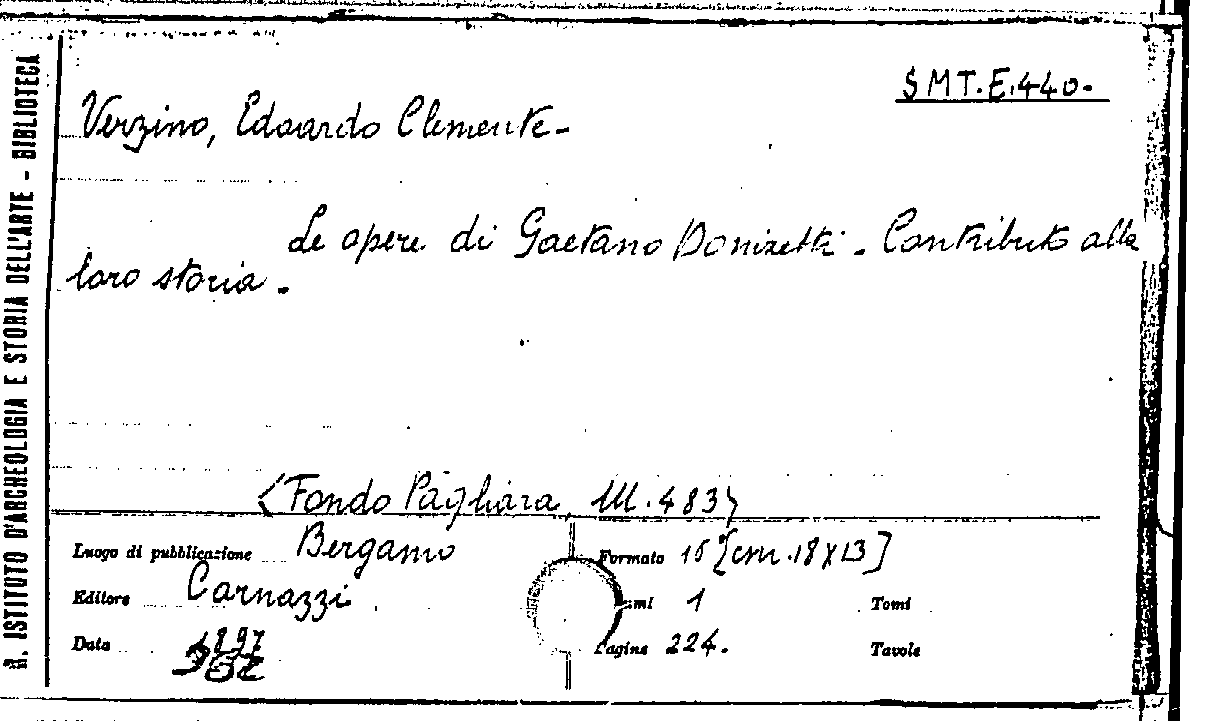 R. ISTITUTO D'ARCHEOLOGIA E STORIA DELL'ARTE - BIBLIOTECA
SMT.E.440.
Verzino, Edoardo Clemente-
Le opere di Gaetano Donizetti - Contributo alla
loro storia.
<Fondo Pagliara, M.483>
Luogo di pubblicazione Bergamo
Formato 16° [cm.18x13]
Editore Carnazzi
1
Tomi
Data 1897
Pagine 224.
Tavole